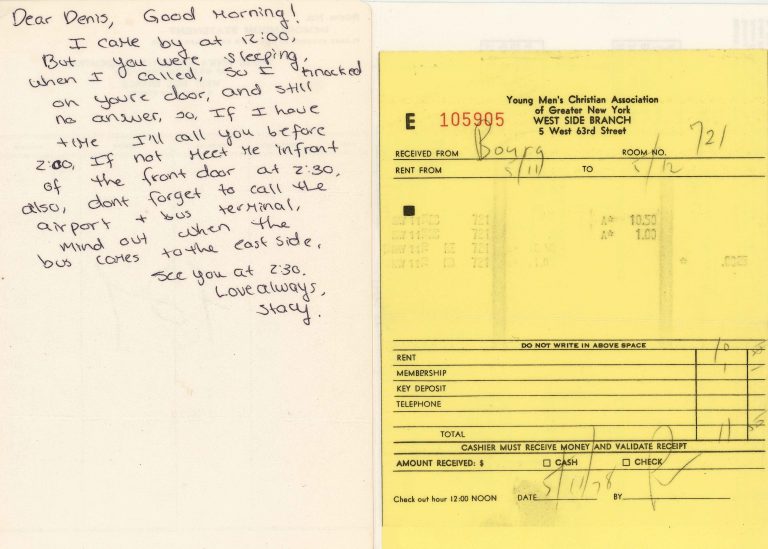 Dear Denis, Good Morning!
I came by at 12:00,
But you were sleeping,
when I called, so I knocked
on youre door, and still
no answer, so, If I have
time I'll call you before
2:00, If not Meet Me infront
of the front door at 2:30,
also, dont forget to call the
airport + bus terminal,
Mind out when the
bus comes to the east side.
See you at 2:30.
Love always,
Stacy.
Young Men's Christian Association
of Greater New York
WEST SIDE BRANCH
5 West 63rd Street
E 105905
RECEIVED FROM Bourg ROOM NO. 721
RENT FROM 5/11 TO 5/12
721 A* 10.50
721 A* 1.00
721
721
DO NOT WRITE IN ABOVE SPACE
RENT 10
MEMBERSHIP 1
KEY DEPOSIT
TELEPHONE
TOTAL 11
CASHIER MUST RECEIVE MONEY AND VALIDATE RECEIPT
AMOUNT RECEIVED: $ CASH CHECK
Check out hour 12:00 NOON DATE 5/11/78 BY